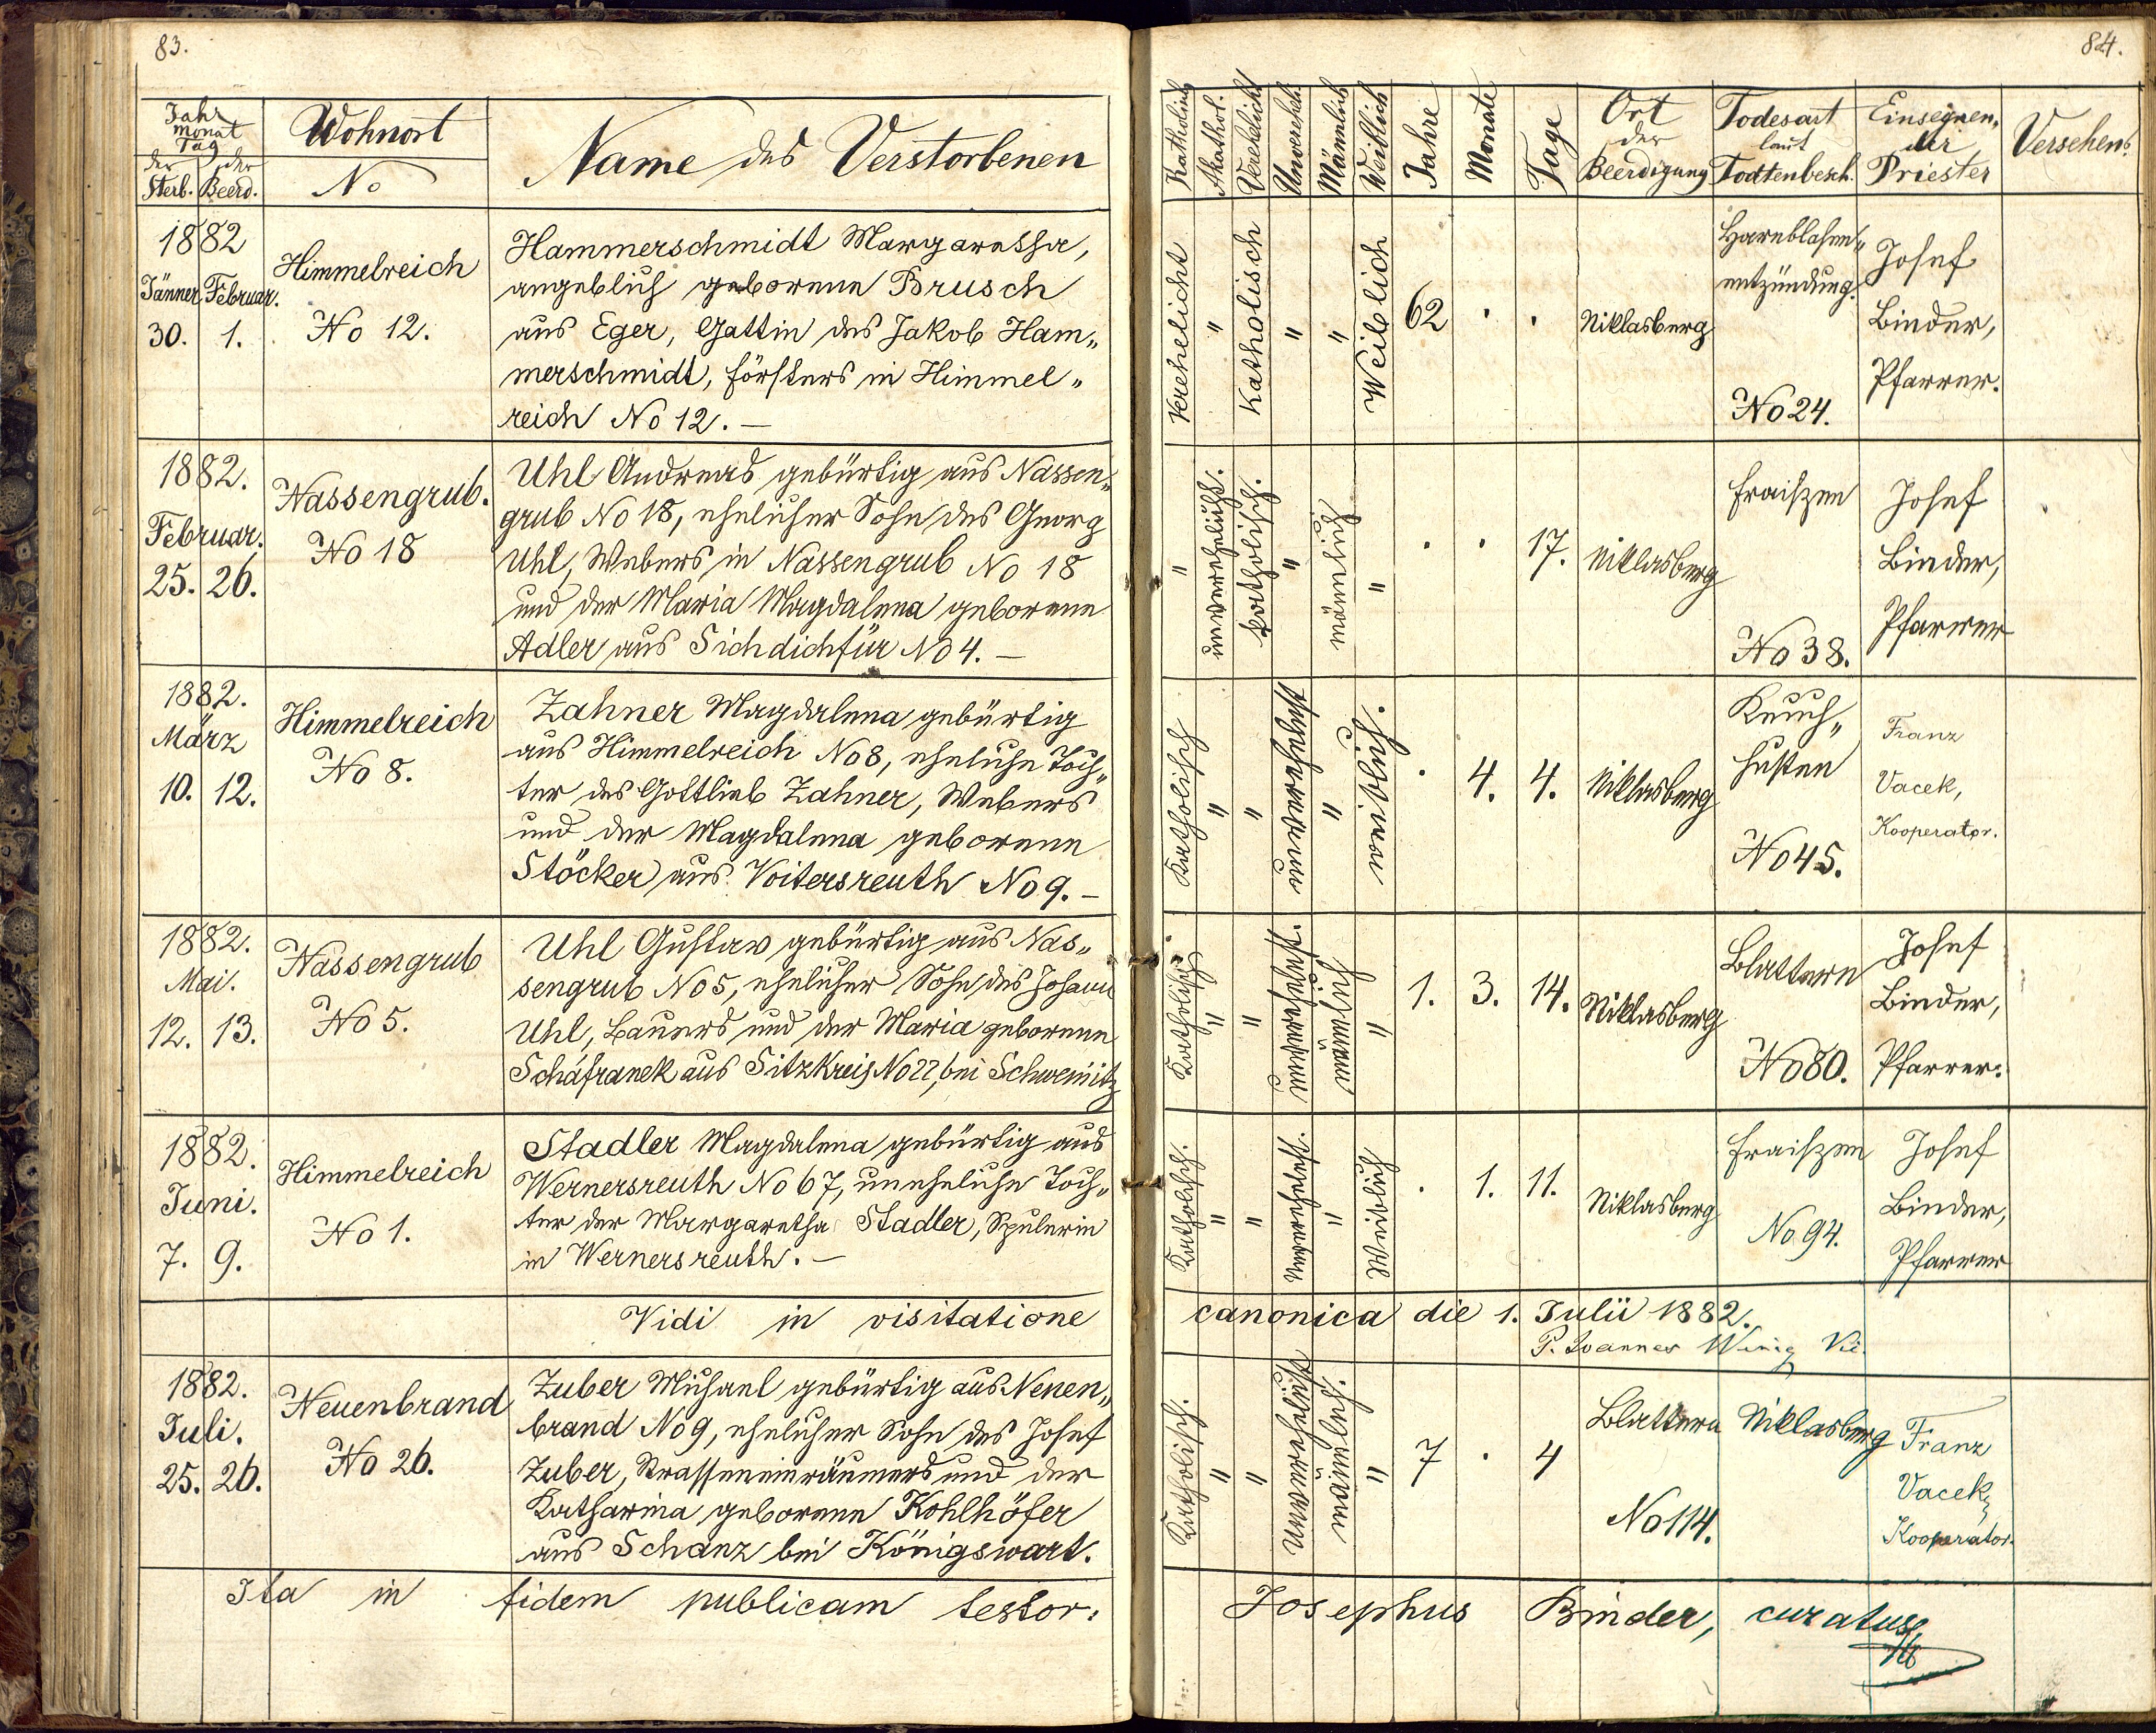 83.
Jahr
Monat
Tag
der
Sterb.
der
Beerd.
Wohnort
No
Name des Verstorbenen
1882
Jänner Februar.
30. 1.
Himmelreich
No 12.
Hammerschmidt Margaretha,
angeblich geborene Brusch
aus Eger, Gattin des Jakob Ham„
merschmidt, Försters in Himmel„
reich No 12. —
1882.
Februar.
25. 26.
Nassengrub.
No 18
Uhl Andreas gebürtig aus Nassen„
grub No 18, ehelicher Sohn des Georg
Uhl, Webers in Nassengrub No 18
und der Maria Magdalena geborene
Adler aus Sichdichfür No 4. —
1882.
März
10. 12.
Himmelreich
No 8.
Zahner Magdalena gebürtig
aus Himmelreich No 8, eheliche Toch„
ter des Gottlieb Zahner, Webers
und der Magdalena geborene
Stöcker aus Voitersreuth No 9. —
1882.
Mai.
12. 13.
Nassengrub
No 5.
Uhl Gustav gebürtig aus Nas„
sengrub No 5, ehelicher Sohn des Johann
Uhl, Bauers und der Maria geborene
Schäfranek aus Sitzkreis No 22, bei Schweinitz
1882.
Juni.
7. 9.
Himmelreich
No 1.
Stadler Magdalena gebürtig aus
Wernersreuth No 67, uneheliche Toch„
ter der Margaretha Stadler, Spulerin
in Wernersreuth. —
Vidi in visitatione
1882.
Juli.
25. 26.
Neuenbrand
No 26.
Zuber Michael gebürtig aus Neuen„
brand No 9, ehelicher Sohn des Josef
Zuber, Strasseneinräumers und der
Katharina geborene Kohlhöfer
aus Schanz bei Königswart.
Ita in fidem publicam testor:
84.
Katholisch
Akathol.
Verehelicht
Unverehel.
Männlich
Weiblich
Jahre
Monate
Tage
Ort
der
Beerdigung
Todesart
laut
Todtenbesch.
Einsegnen„
der
Priester
Versehen
Verehelicht
"
Katholisch
"
"
Weiblich
62 . .
Niklasberg
Harnblasen„
entzündung.
No 24.
Josef
Binder,
Pfarrer.
"
unverehelicht.
katholisch.
"
männlich
"
. . 17.
Niklasberg
Fraisen
No 38.
Josef
Binder,
Pfarrer
Katholisch
"
"
unverehelicht
"
weiblich.
. 4. 4.
Niklasberg
Keuch„
husten
No 45.
Franz
Vacek,
Kooperator.
Katholisch
"
"
unverehelicht.
männlich
"
1. 3. 14.
Niklasberg
Blattern
No 80.
Josef
Binder,
Pfarrer.
Katholisch.
"
"
Unverehelicht.
"
Weiblich
. 1. 11.
Niklasberg
Fraisen
No 94.
Josef
Binder,
Pfarrer
canonica die 1. Julii 1882.
P. Joannes Vic.
Katholisch.
"
"
Unverehelicht
männlich.
"
7 . 4
Blattern
No 114.
Niklasberg
Franz
Vacek,
Kooperator.
Josephus Binder, curatus